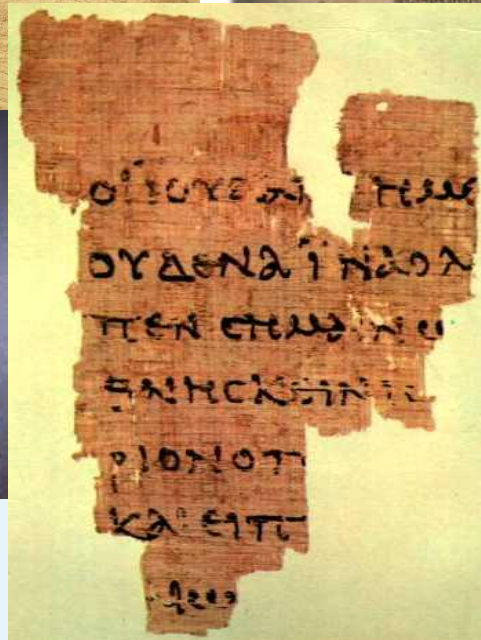 ΟΙ ΙΟΥΔΑΙ ΗΜΕ
ΟΥΔΕΝΑ ΙΝΑΟΛ
ΠΕΝ ΣΗΜΑΙΝΩ
ΘΝΗΣΚΕΙΝ ΙΣ
ΡΙΟΝ Ο Π
ΚΑΙ ΕΙΠ